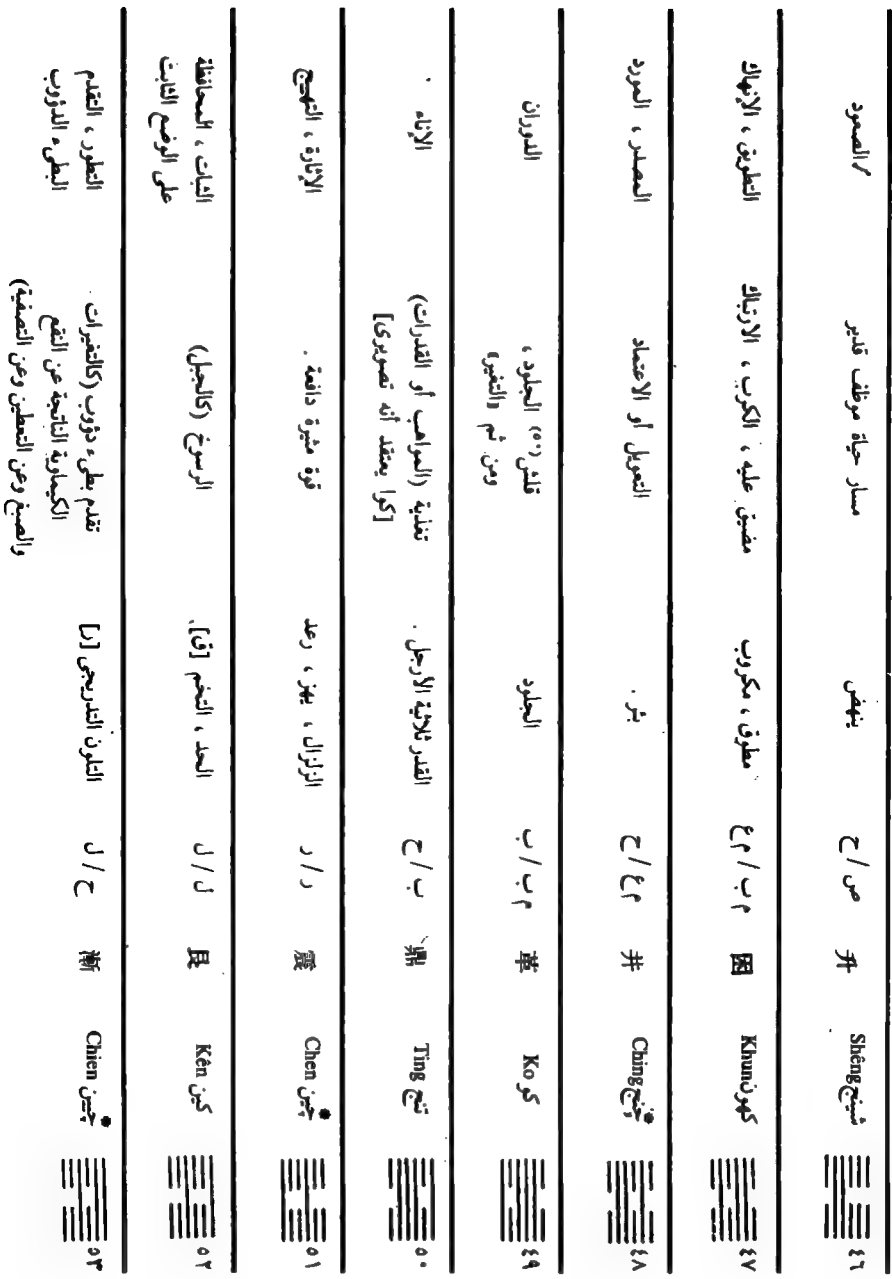 ٤٦ شينج Shêng 升 ص / ح ينهض مسار حياة موظف قدير الصعود
٤٧ كهون Khun 困 م ب / م ع مطوق ، مكروب مضيق عليه ، الكرب ، الارتباك التطويق ، الإنهاك
٤٨ چنج Ching 井 م ع / ح بئر . التعويل أو الاعتماد المصدر ، المورد
٤٩ كو Ko 革 م ب / ب الجلود قلش (٥٠) الجلود ، الدوران
ومن ثم «التغير»
٥٠ تنج Ting 鼎 ب / ح القدر ثلاثية الأرجل . تغذية (المواهب أو القدرات) الإناء
[كوا يعتقد أنه تصويرى]
٥١ چين* Chen 震 ر / ر الزلزال ، يهز ، رعد قوة مثيرة دافعة . الإثارة ، التهييج
٥٢ كين Kên 艮 ل / ل الحد ، التخم [ق]. الرسوخ (كالجبل) الثبات ، المحافظة
على الوضع الثابت
٥٣ چيين* Chien 漸 ح / ل التلون التدريجى [ر] تقدم بطىء دؤوب (كالتغيرات التطور ، التقدم
الكيماوية الناتجة عن النقع البطىء الدؤوب
والصبغ وعن التعطين وعن التصفية)